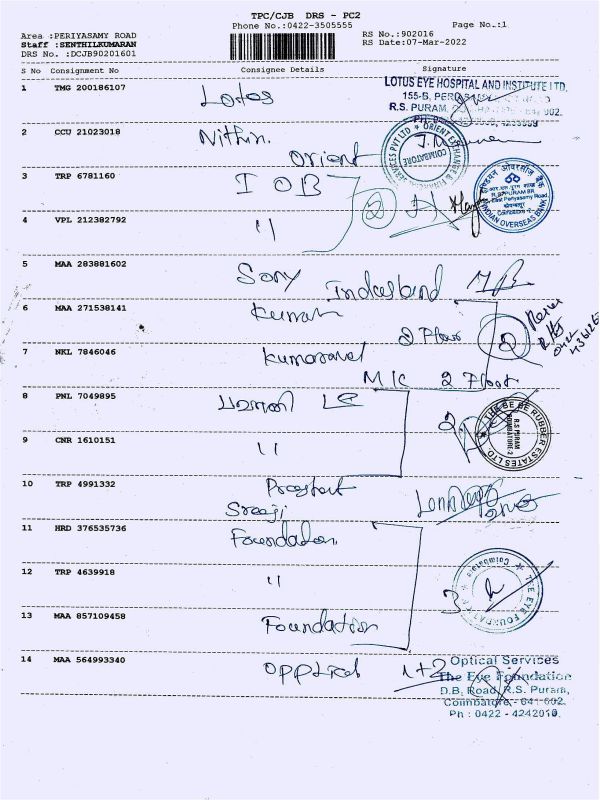 TPC/CJB DRS - PC2
Phone No.:0422-3505555 Page No.:1
Area :PERIYASAMY ROAD
Staff :SENTHILKUMARAN
DRS No. :DCJB90201601
RS No.:902016
RS Date:07-Mar-2022
S No Consignment No Consignee Details Signature
1 TMG 200186107 Lotus
LOTUS EYE HOSPITAL AND INSTITUTE LTD.
155-B,
R.S. PURAM,
2 CCU 21023018 Nithin.
Orient
ORIENT EXCHANGE & SERVICES PVT LTD
COIMBATORE
3 TRP 6781160 IOB
2
इण्डियन ओवरसीज़ बैंक
R.S. PURAM BR
East Periyasamy Road
Coimbatore -2
INDIAN OVERSEAS BANK
4 VPL 212382792 "
5 MAA 283881602 Sony
Indusland
6 MAA 271538141 Kumar
2 Floor
2
7 NKL 7846046
MIC 2 Floor
8 PNL 7049895
2
THE BE BE RUBBER ESTATES LTD
R.S PURAM
COIMBATORE-2
9 CNR 1610151 "
10 TRP 4991332
Sreeji
11 HRD 376535736 Foundation.
12 TRP 4639918 "
3
THE EYE FOUNDATION
Coimbatore
13 MAA 857109458 Foundation
14 MAA 564993340 Opptical 1+2
Optical Services
The Eye Foundation
D.B. Road, R.S. Puram,
Coimbatore - 641 002.
Ph : 0422 - 4242010.